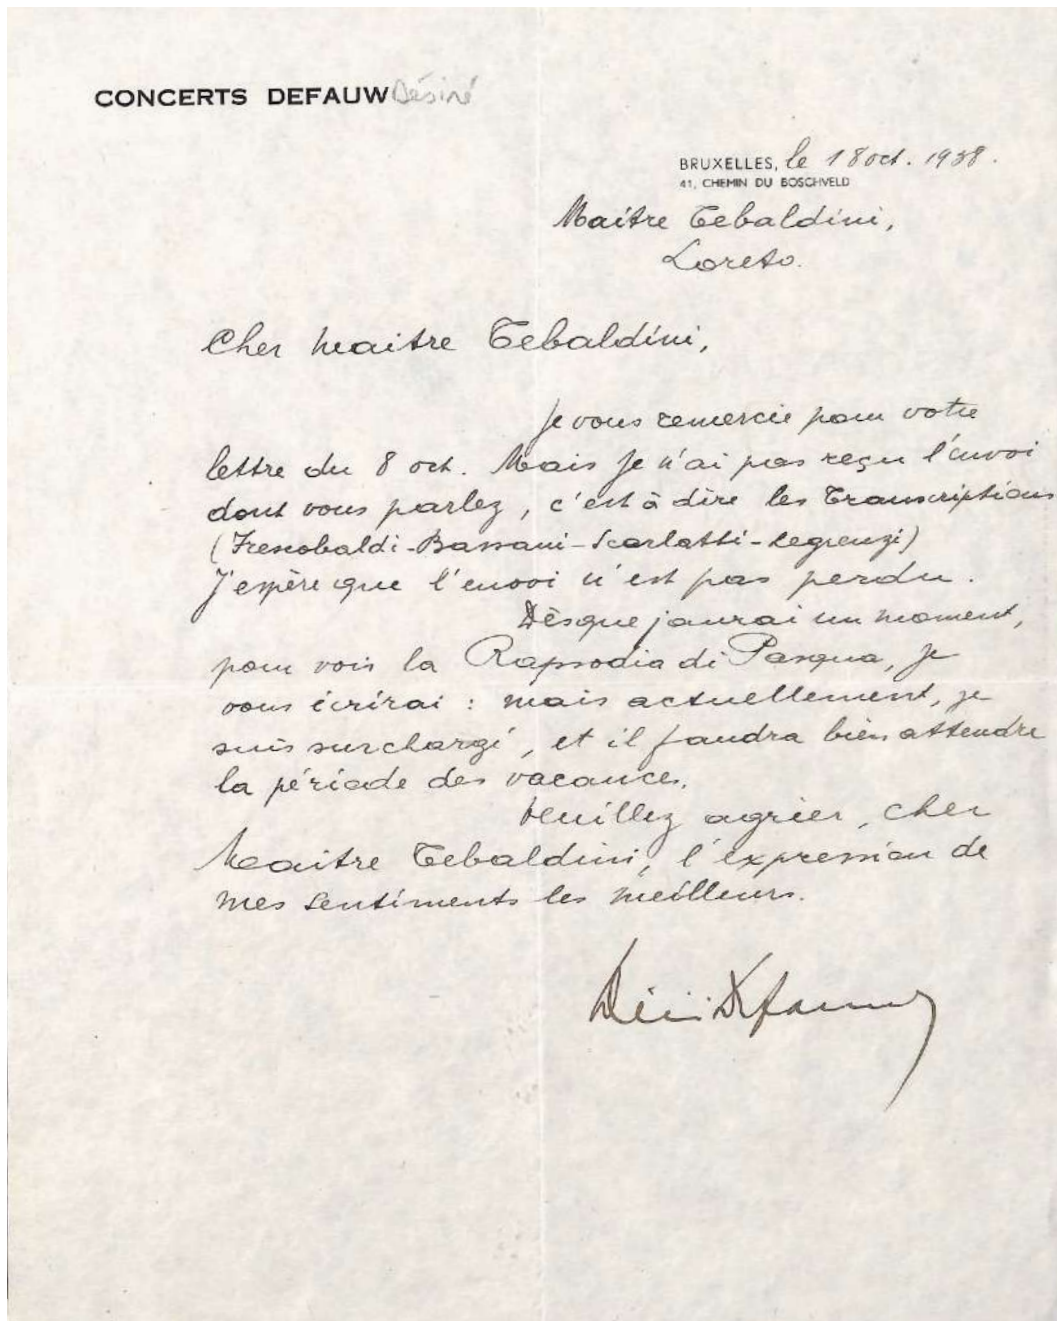 CONCERTS DEFAUW Désiré
BRUXELLES, le 18 oct. 1938.
41, CHEMIN DU BOSCHVELD
Maitre Tebaldini,
Loreto.
Cher Maitre Tebaldini,
Je vous remercie pour votre
lettre du 8 oct. Mais je n'ai pas reçu l'envoi
dont vous parlez, c'est à dire les Transcriptions
(Frescobaldi-Bassani-Scarlatti-Legrenzi)
J'espère que l'envoi n'est pas perdu.
Dès que j'aurai un moment,
pour voir la Rapsodia di Pasqua, je
vous écrirai : mais actuellement, je
suis surchargé, et il faudra bien attendre
la période des vacances.
Veuillez agréer, cher
Maitre Tebaldini, l'expression de
mes sentiments les meilleurs.
Désiré Defauw